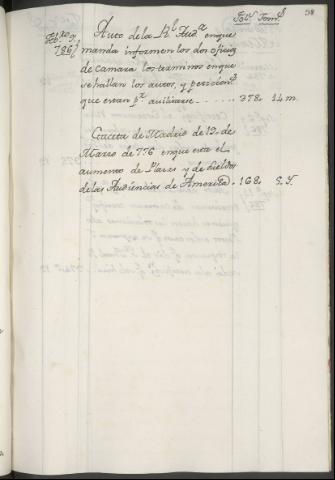 98
Fol.s Tom.s
Feb.ro 9,, Auto de la R.l Aud.a en que
786,, manda informen los dos oficios
de camara los terminos en que
se hallan los autos, y peticion.s
que estan p.a auxiliarse . . . . . 378. 14 m.
Gaceta de Madrid de 19. de
Marzo de 776 en que esta el
aumento de Plazas y de sueldos
de las Audiencias de America . 168.